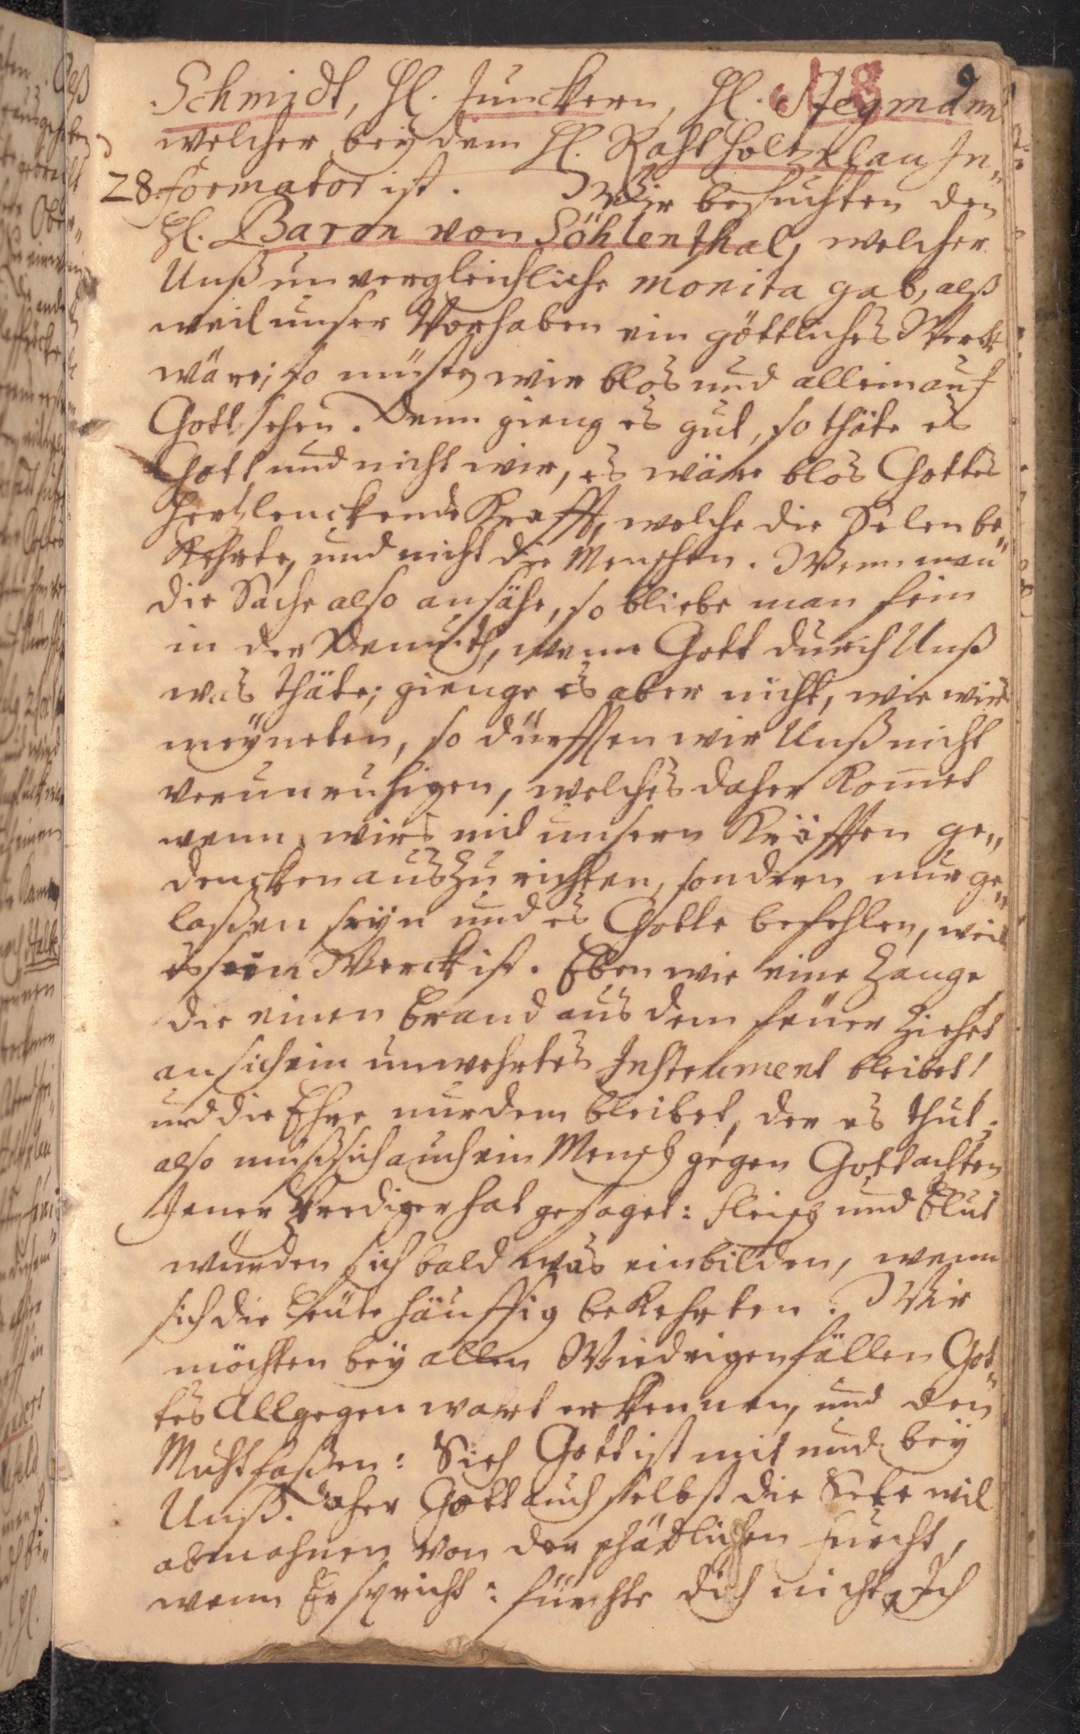 Schmidt, H. Junckern, H. Stegmann
welcher bey dem H. Raht Holtzklau In-
28. formator ist. Wir besuchten den
H. Baron von Söhlenthal, welcher
Unß unvergleichliche monita gab, alß
weil unser Vorhaben ein göttliches Werck
wäre; so müsten wir blos und allein auf
Gott sehen. Denn gieng es gut, so thäte es
Gott, und nicht wir, es wäre blos Gottes
Hertzlenckende Krafft, welche die Selen be-
kehrte, und nicht die Menschen. Wenn man
die Sache also ansähe, so bliebe man fein
in der Demuth, wenn Gott durch Unß
was thäte; gienge es aber nicht, wie wir
meyneten, so dürfften wir Unß nicht
verunruhigen, welches daher komet
wenn wirs mit unsern Kräfften ge-
dencken auszurichten, sondern nur ge-
laßen seyn und es Gotte befehlen, weil
es sein Werck ist. Eben wie eine Zange
die einen Brand aus dem feuer ziehet
an sich ein unwehrtes Instrument bleibet!
und die Ehre nur dem bleibet, der es thut;
also muß sich auch ein Mensch gegen Gott achten
Jener Prediger hat gesaget: fleisch und Blut
würden sich bald was einbilden, wenn
sich die Leute häuffig bekehrten. Wir
möchten bey allen Wiedrigen fällen Got-
tes Allgegenwart erkennen, und den
Muht faßen: Sieh Gott ist mit und bey
Unß. Daher Gott auch selbst die Sele wil
abmahnen von der schädlichen furcht,
wenn Er spricht: fürchte dich nicht, Ich